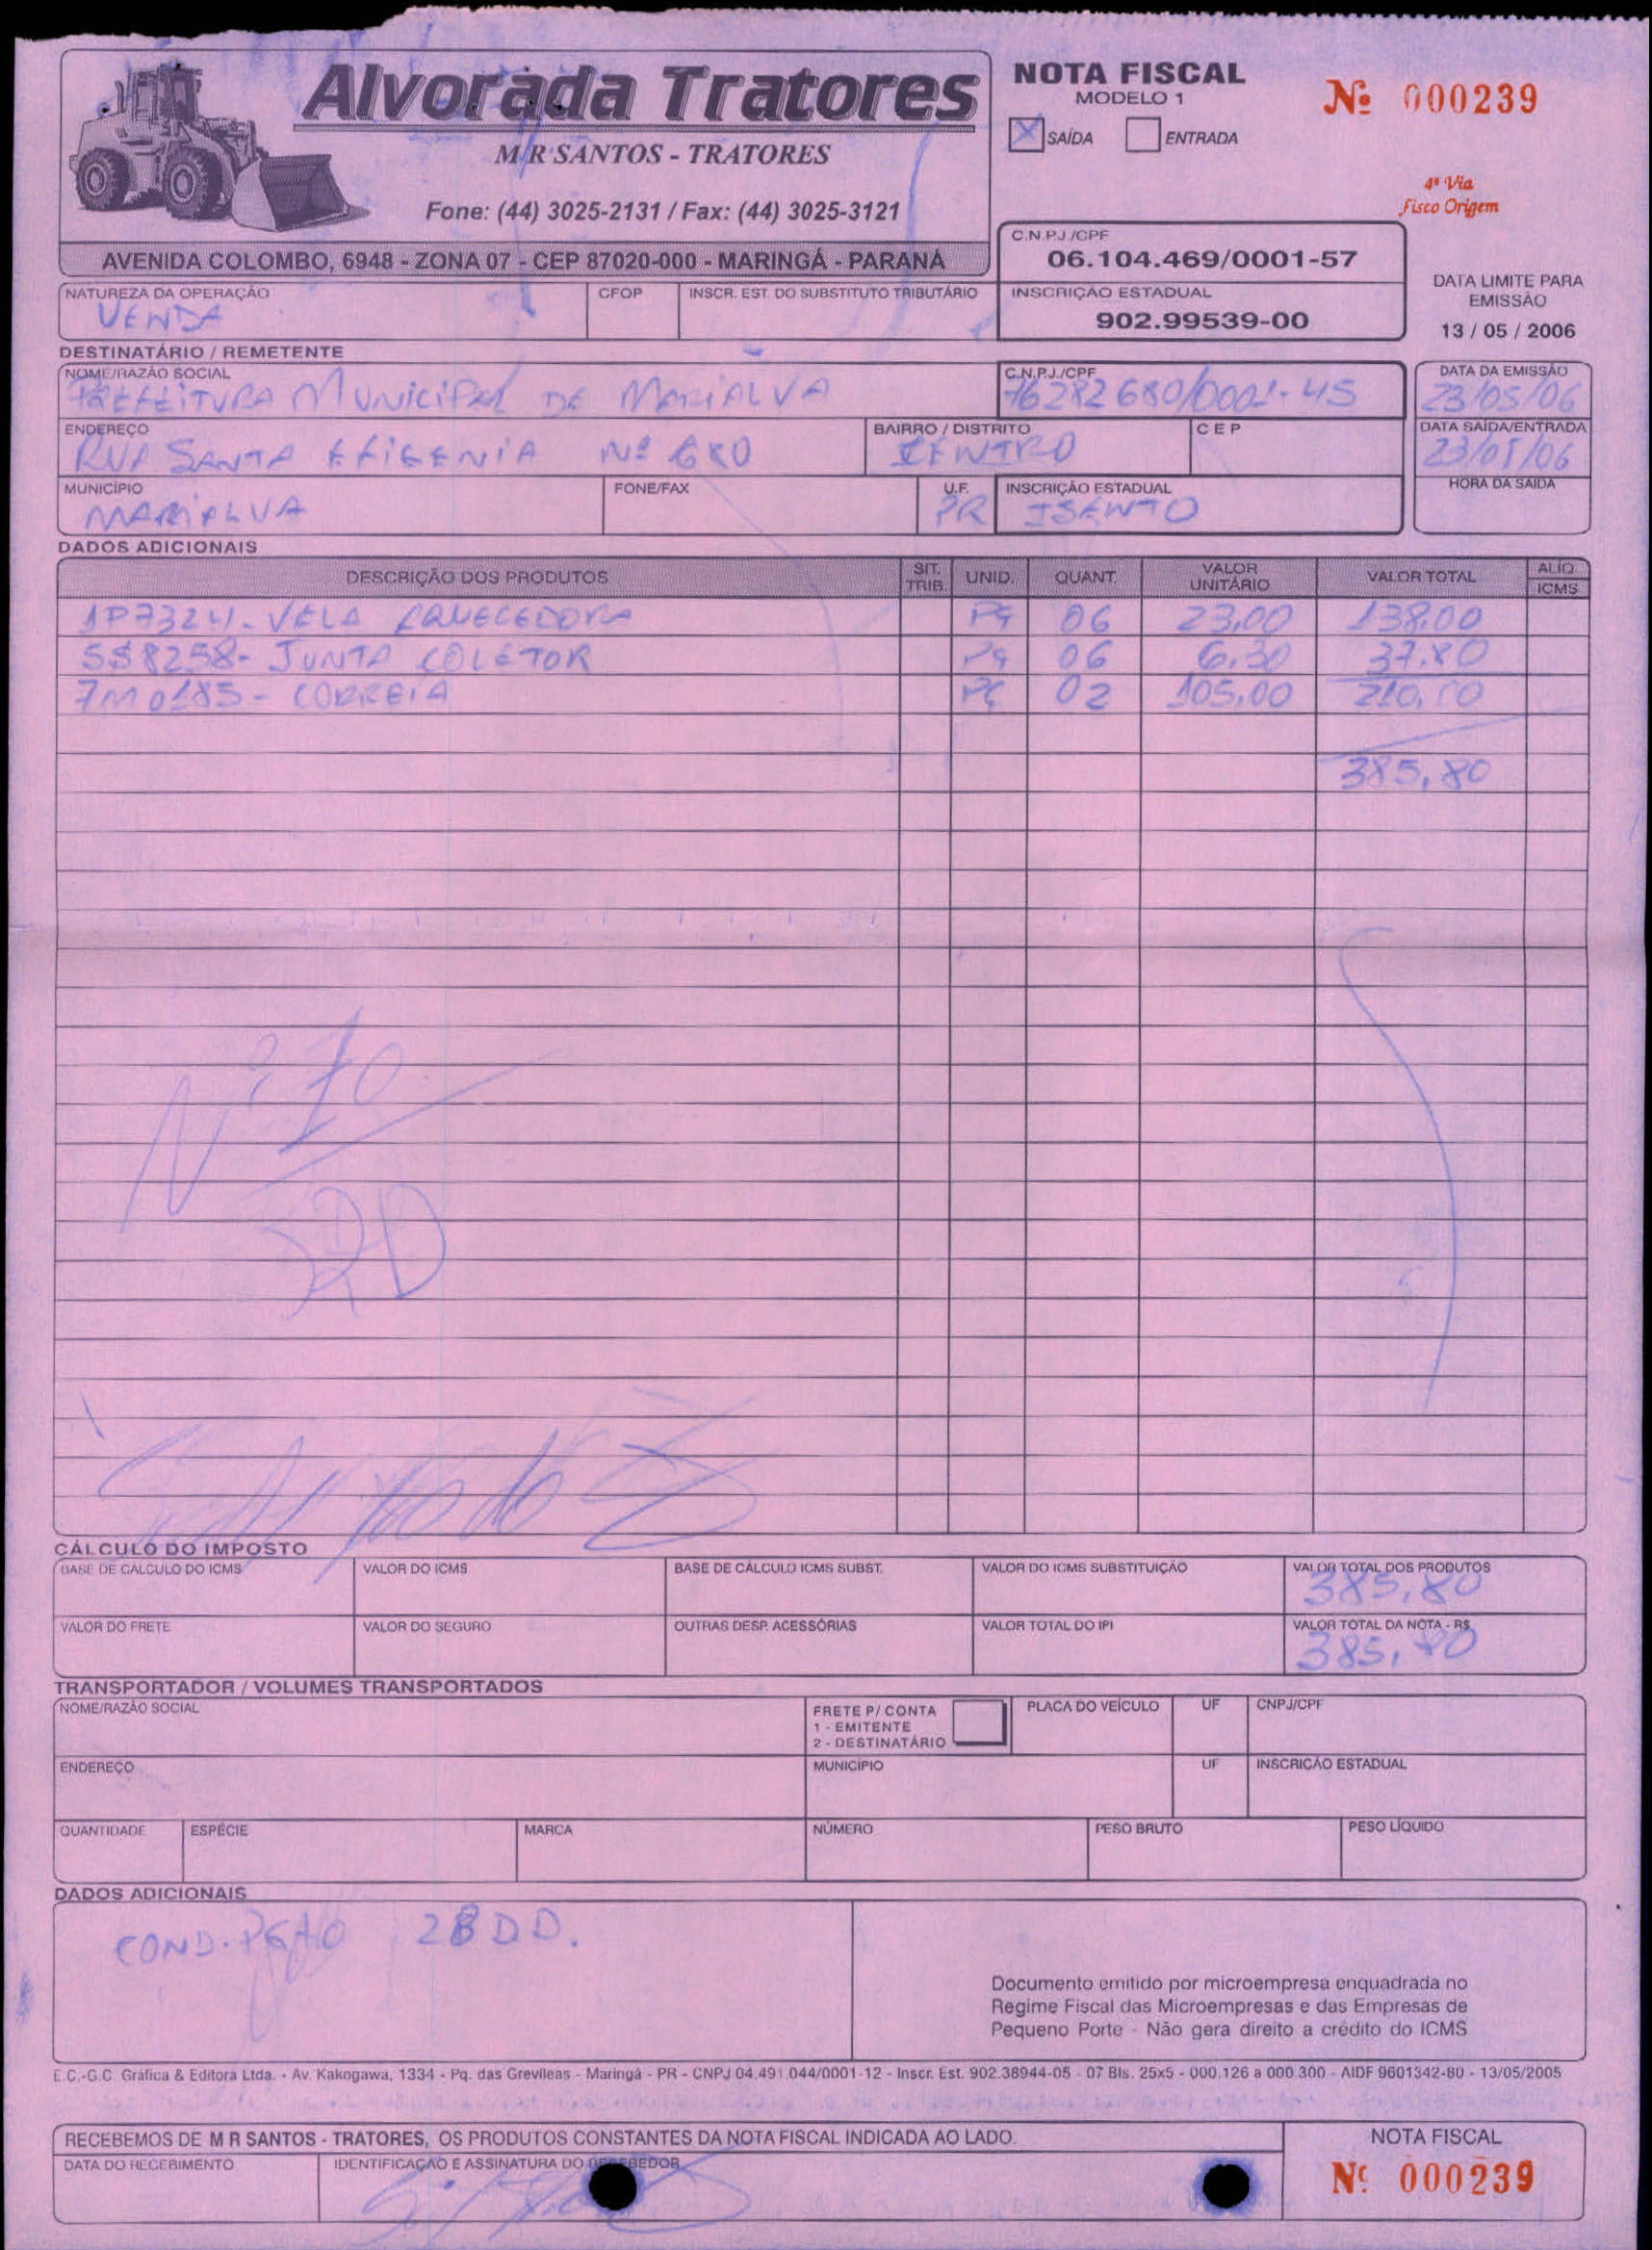 Alvorada Tratores
M R SANTOS - TRATORES
Fone: (44) 3025-2131 / Fax: (44) 3025-3121
AVENIDA COLOMBO, 6948 - ZONA 07 - CEP 87020-000 - MARINGÁ - PARANÁ
NOTA FISCAL
MODELO 1
X SAÍDA ENTRADA
Nº 000239
4ª Via
Fisco Origem
C.N.P.J./CPF
06.104.469/0001-57
INSCRIÇÃO ESTADUAL
902.99539-00
DATA LIMITE PARA
EMISSÃO
13 / 05 / 2006
NATUREZA DA OPERAÇÃO CFOP INSCR. EST. DO SUBSTITUTO TRIBUTÁRIO
VENDA
DESTINATÁRIO / REMETENTE
NOME/RAZÃO SOCIAL C.N.P.J./CPF DATA DA EMISSÃO
PREFEITURA MUNICIPAL DE MARIALVA 76282680/0001-45 23/05/06
ENDEREÇO BAIRRO / DISTRITO CEP DATA SAÍDA/ENTRADA
RUA SANTA EFIGENIA Nº 680 CENTRO 23/05/06
MUNICÍPIO FONE/FAX U.F. INSCRIÇÃO ESTADUAL HORA DA SAÍDA
MARIALVA PR ISENTO
DADOS ADICIONAIS
DESCRIÇÃO DOS PRODUTOS SIT. TRIB. UNID. QUANT. VALOR UNITÁRIO VALOR TOTAL ALÍQ. ICMS
1P7324 - VELA AQUECEDORA PÇ 06 23,00 138,00
5S8258 - JUNTA COLETOR PÇ 06 6,30 37,80
7M0185 - CORREIA PÇ 02 105,00 210,00
385,80
Nº 70
CÁLCULO DO IMPOSTO
BASE DE CÁLCULO DO ICMS VALOR DO ICMS BASE DE CÁLCULO ICMS SUBST. VALOR DO ICMS SUBSTITUIÇÃO VALOR TOTAL DOS PRODUTOS
385,80
VALOR DO FRETE VALOR DO SEGURO OUTRAS DESP. ACESSÓRIAS VALOR TOTAL DO IPI VALOR TOTAL DA NOTA - R$
385,80
TRANSPORTADOR / VOLUMES TRANSPORTADOS
NOME/RAZÃO SOCIAL FRETE P/ CONTA PLACA DO VEÍCULO UF CNPJ/CPF
1 - EMITENTE
2 - DESTINATÁRIO
ENDEREÇO MUNICÍPIO UF INSCRIÇÃO ESTADUAL
QUANTIDADE ESPÉCIE MARCA NÚMERO PESO BRUTO PESO LÍQUIDO
DADOS ADICIONAIS
COND. PGTO 28 DD.
Documento emitido por microempresa enquadrada no
Regime Fiscal das Microempresas e das Empresas de
Pequeno Porte - Não gera direito a crédito do ICMS
E.C.-G.C Gráfica & Editora Ltda. - Av. Kakogawa, 1334 - Pq. das Grevíleas - Maringá - PR - CNPJ 04.491.044/0001-12 - Inscr. Est. 902.38944-05 - 07 Bls. 25x5 - 000.126 a 000.300 - AIDF 9601342-80 - 13/05/2005
RECEBEMOS DE M R SANTOS - TRATORES, OS PRODUTOS CONSTANTES DA NOTA FISCAL INDICADA AO LADO.
DATA DO RECEBIMENTO IDENTIFICAÇÃO E ASSINATURA DO RECEBEDOR
NOTA FISCAL
Nº 000239